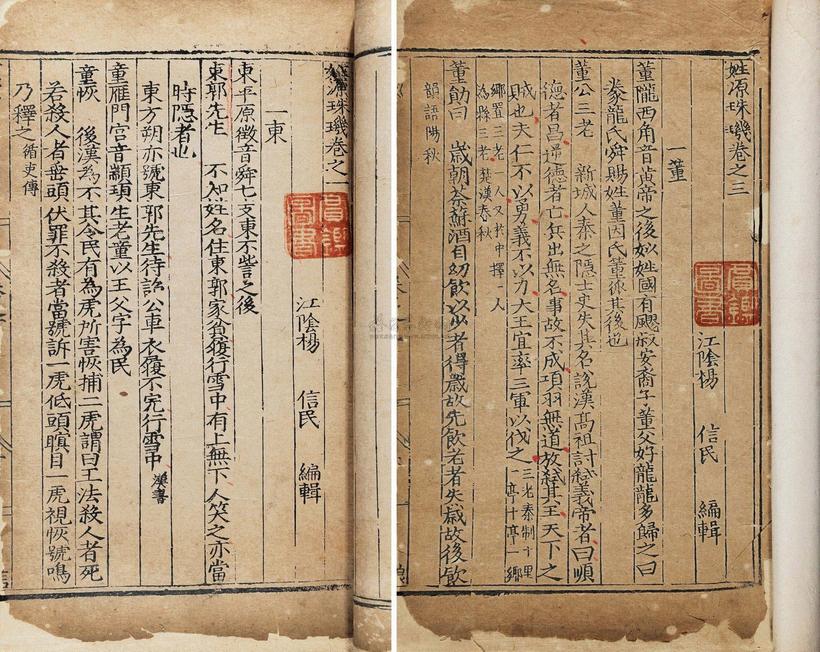 姓源珠璣卷之一
江陰楊 信民 編輯
一東
東平原徵音舜七友東不訾之後
東郭先生 不知姓名住東郭家貧履行雪中有上無下人笑之亦當
時隱者也
東方朔亦號東郭先生待詔公車衣履不完行雪中 漢書
童雁門宮音顓頊生老童以王父字為氏
童恢 後漢為不其令民有為虎所害恢捕二虎謂曰王法殺人者死
若殺人者垂頭伏罪不殺者當號訴一虎低頭瞑目一虎視恢號鳴
乃釋之 循吏傳
姓源珠璣卷之三
江陰楊 信民 編輯
一董
董隴西角音黃帝之後姒姓國有飂叔安裔子董父好龍龍多歸之曰
豢龍氏舜賜姓董因氏董狐其後也
董公三老 新城人秦之隱士史失其名說漢高祖討弒義帝者曰順
德者昌逆德者亡兵出無名事故不成項羽無道放弒其主天下之
賊也夫仁不以勇義不以力大王宜率三軍以伐之 三老秦制十里
一亭十亭一鄉
鄉置三老一人又於中擇一人
為縣三老 楚漢春秋
董勛曰 歲朝茶蘇酒自幼飲以少者得歲故先飲老者失歲故後飲
部語陽秋